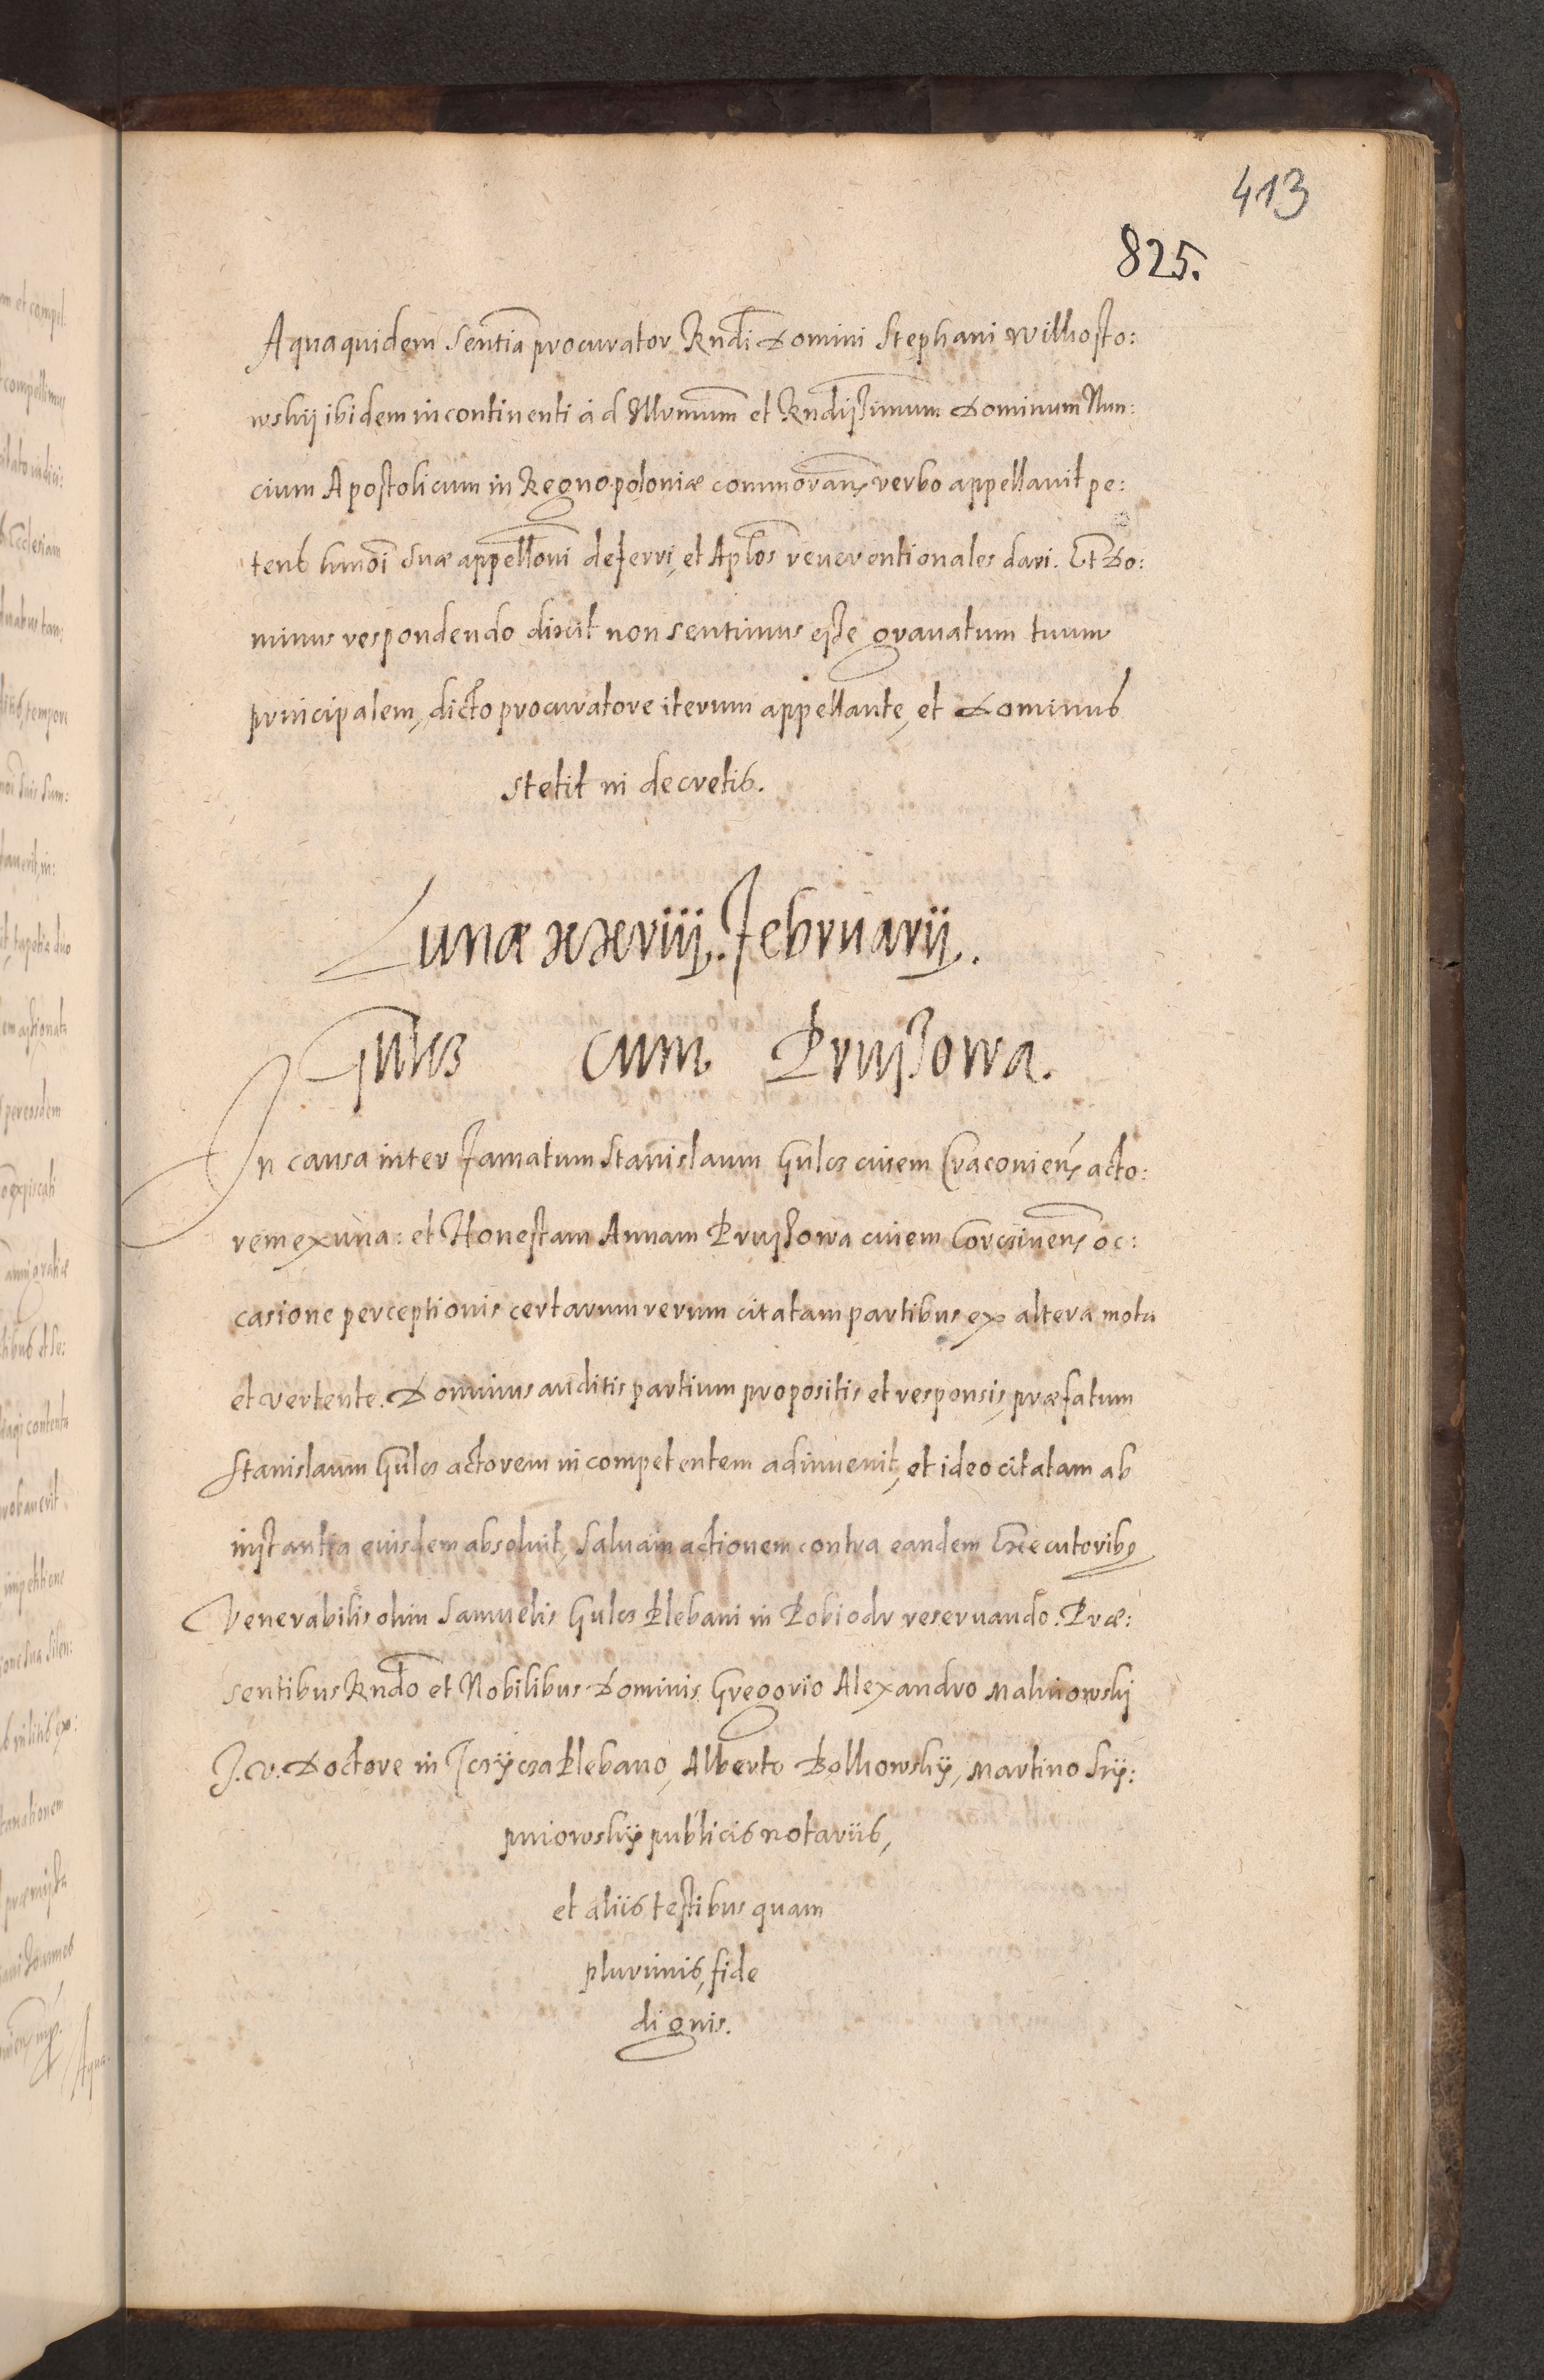 413
825.
A qua quidem sentia procurator Rndi Domini Stephani Wilkosto:
wskij ibidem in continenti ad Illrmum et Rndissimum Dominum Nun:
cium Apostolicum in Regno poloniæ commoran verbo appellauit pe:
tens hmoi suæ appelloni deferri, et Aplos reuerentionales dari. Et Do:
minus respondendo dixit non sentimus esse grauatum tuum
principalem, dicto procuratore iterum appellante, et Dominus
stetit in decretis.
Lunæ xxviij. Februarij.
Gulcz cum Prussowa.
In causa inter famatum Stanislaum Gulcz ciuem Cracouien acto:
rem ex una: et Honestam Annam Prussowa ciuem Corczinen oc:
casione perceptionis certarum rerum citatam partibus ex altera mota
et vertente. Dominus auditis partium propositis et responsis, præfatum
Stanislaum Gulcz actorem incompetentem adinuenit, et ideo citatam ab
instantia euisdem absoluit, saluam actionem contra eandem Executoribus
Venerabilis olim Samuelis Gulcz Plebani in Pobiodr reseruando. Præ:
sentibus Rndo et Nobilibus Dominis Gregorio Alexandro Malinowski
J. V. Doctore in Jczijcza Plebano, Alberto Polkowskij, Martino Srij:
pniowskij publicis notariis,
et aliis testibus quam
plurimis, fide
dignis.